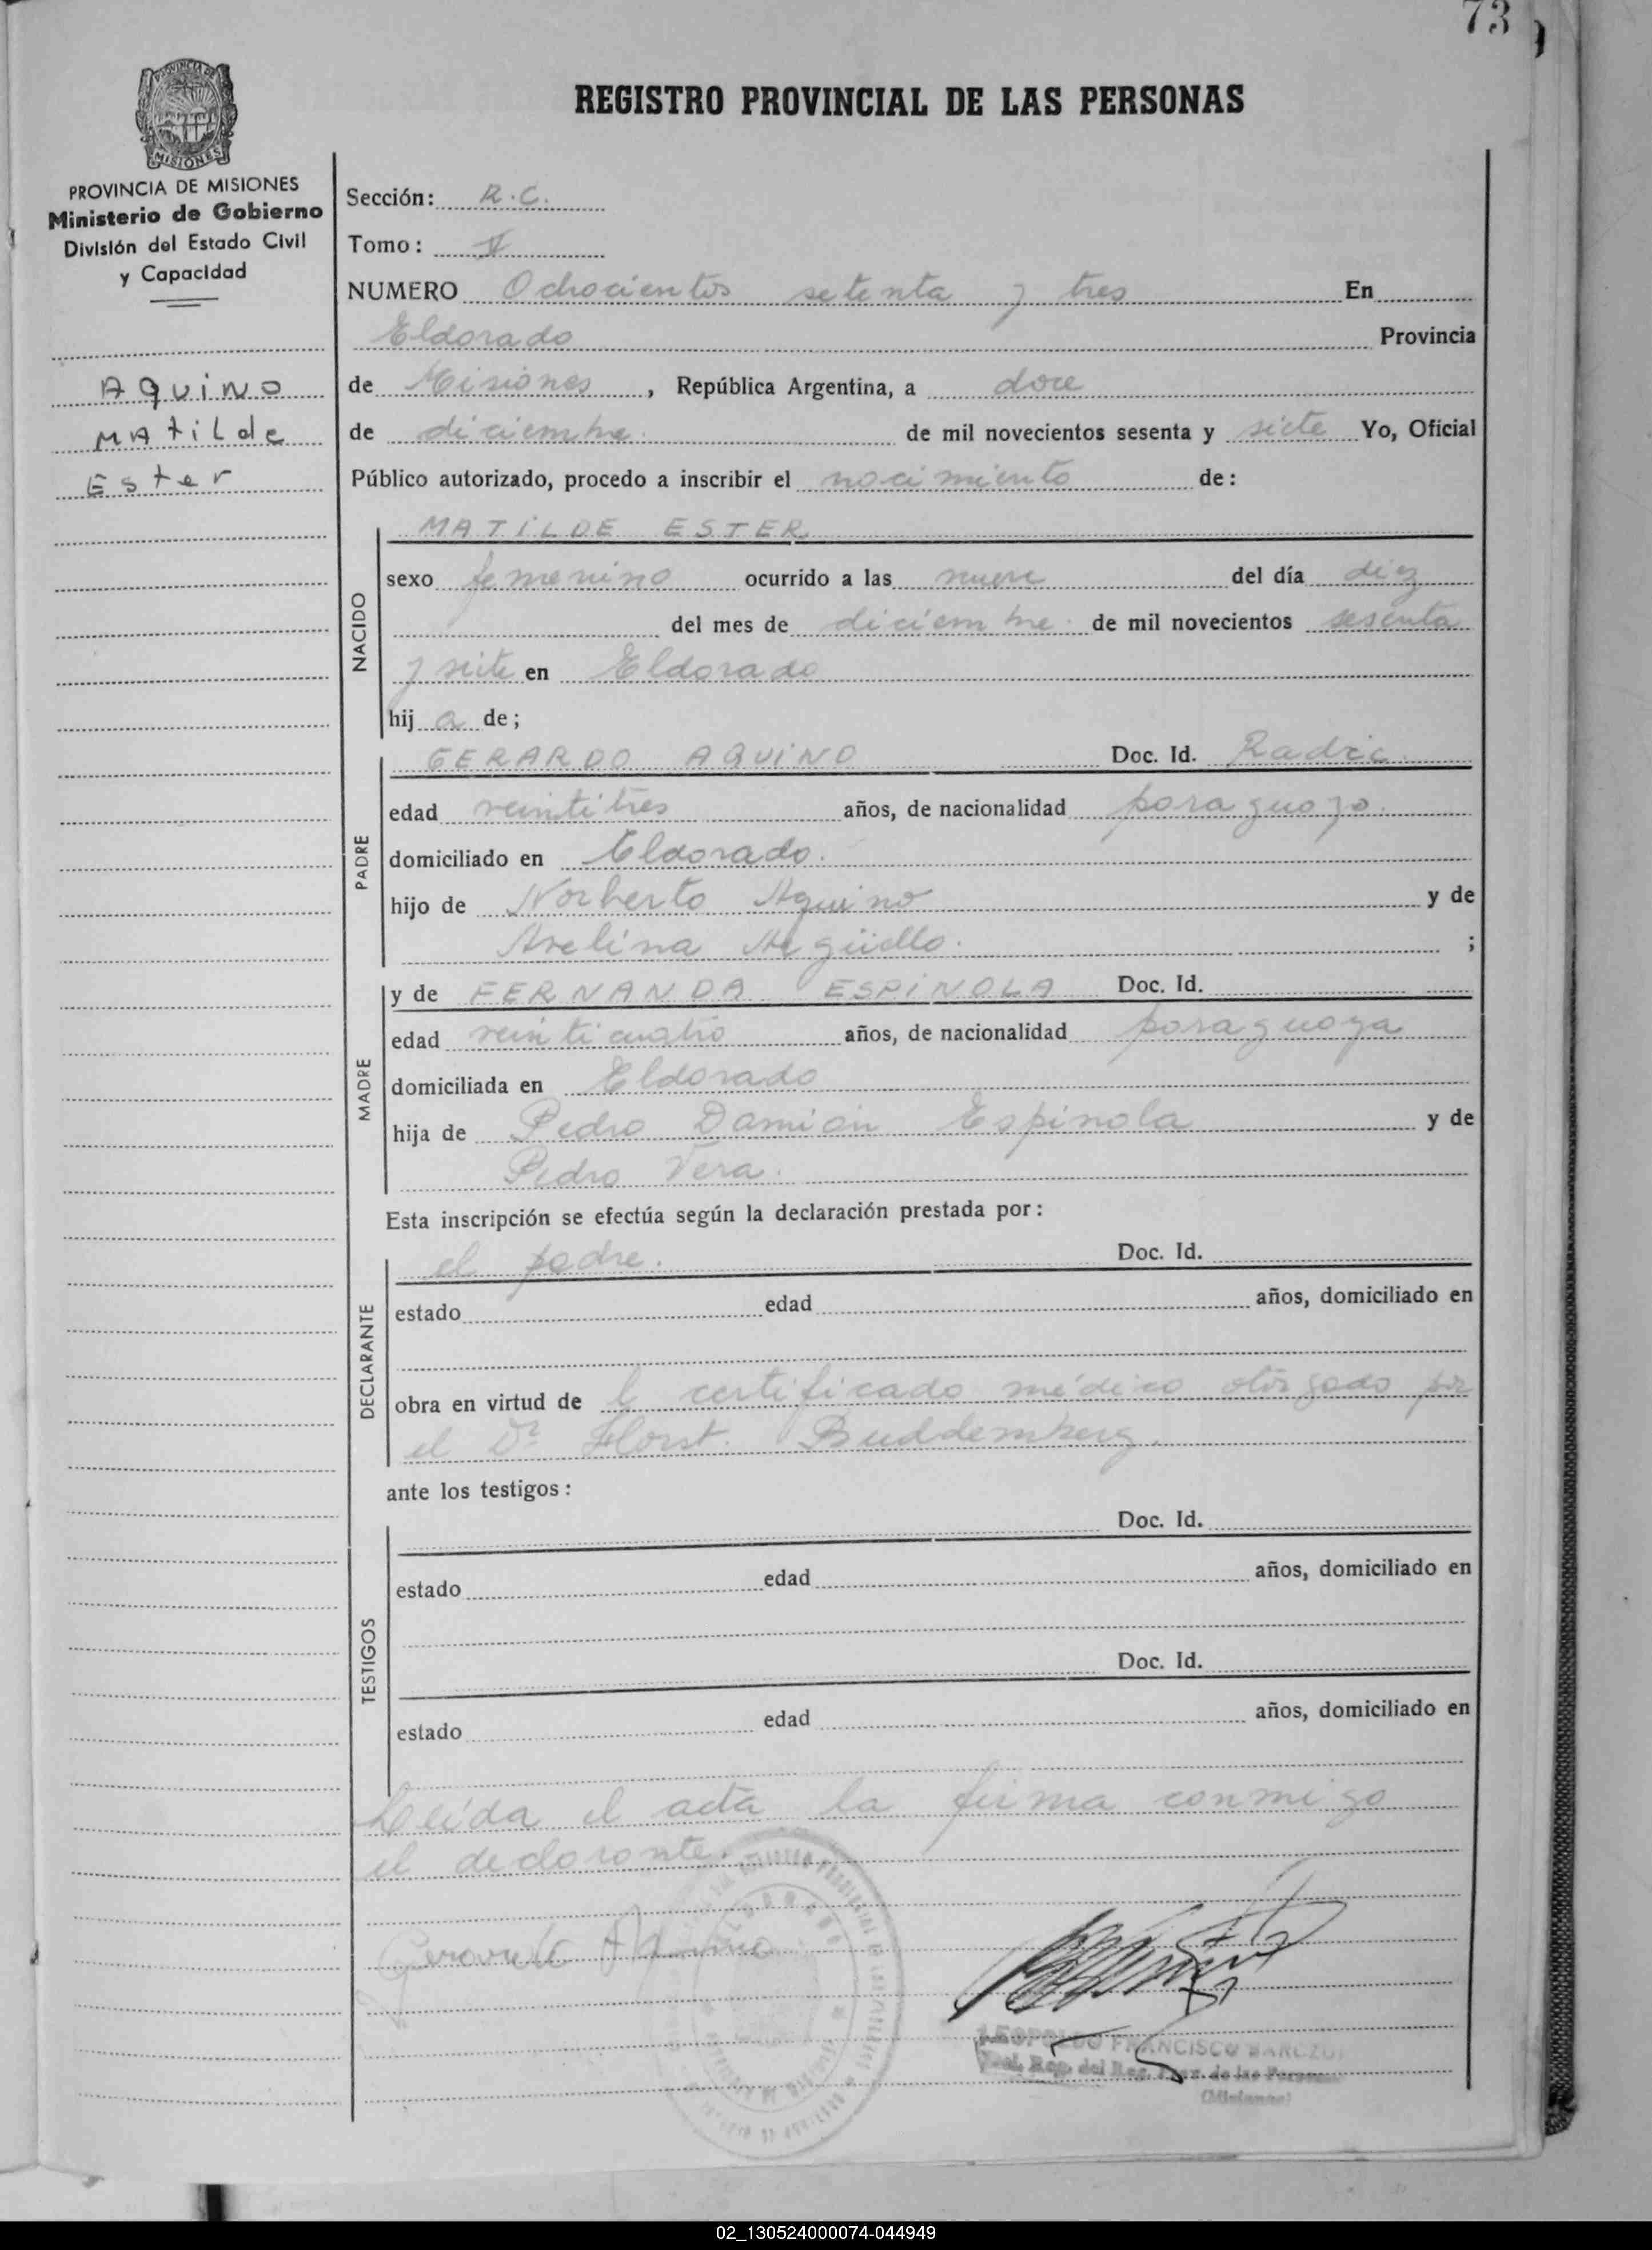 73
REGISTRO PROVINCIAL DE LAS PERSONAS
PROVINCIA DE MISIONES
Ministerio de Gobierno
División del Estado Civil
y Capacidad
AQUINO
MAtiLde
Ester
Sección: R.C.
Tomo: V
NUMERO Ochocientos setenta y tres En
Eldorado Provincia
de Misiones, República Argentina, a doce
de diciembre de mil novecientos sesenta y siete Yo, Oficial
Público autorizado, procedo a inscribir el nacimiento de:
NACIDO
MATILDE ESTER
sexo femenino ocurrido a las nueve del día diez
del mes de diciembre de mil novecientos sesenta
y siete en Eldorado
hija de;
PADRE
GERARDO AQUINO Doc. Id. Radic.
edad veintitres años, de nacionalidad paraguayo.
domiciliado en Eldorado.
hijo de Norberto Aquino y de
Avelina Argüello. ;
MADRE
y de FERNANDA ESPINOLA Doc. Id.
edad veinticuatro años, de nacionalidad paraguaya
domiciliada en Eldorado
hija de Pedro Damián Espinola y de
Pedro Vera.
Esta inscripción se efectúa según la declaración prestada por:
DECLARANTE
el padre. Doc. Id.
estado edad años, domiciliado en
obra en virtud de l certificado médico otorgado por
el Dr Horst. Buddemberg.
ante los testigos:
TESTIGOS
Doc. Id.
estado edad años, domiciliado en
Doc. Id.
estado edad años, domiciliado en
Leída el acta la firma conmigo
el declarante.
LEOPOLDO FRANCISCO
del Reg. Prov. de las Personas
(Misiones)
02_130524000074-044949